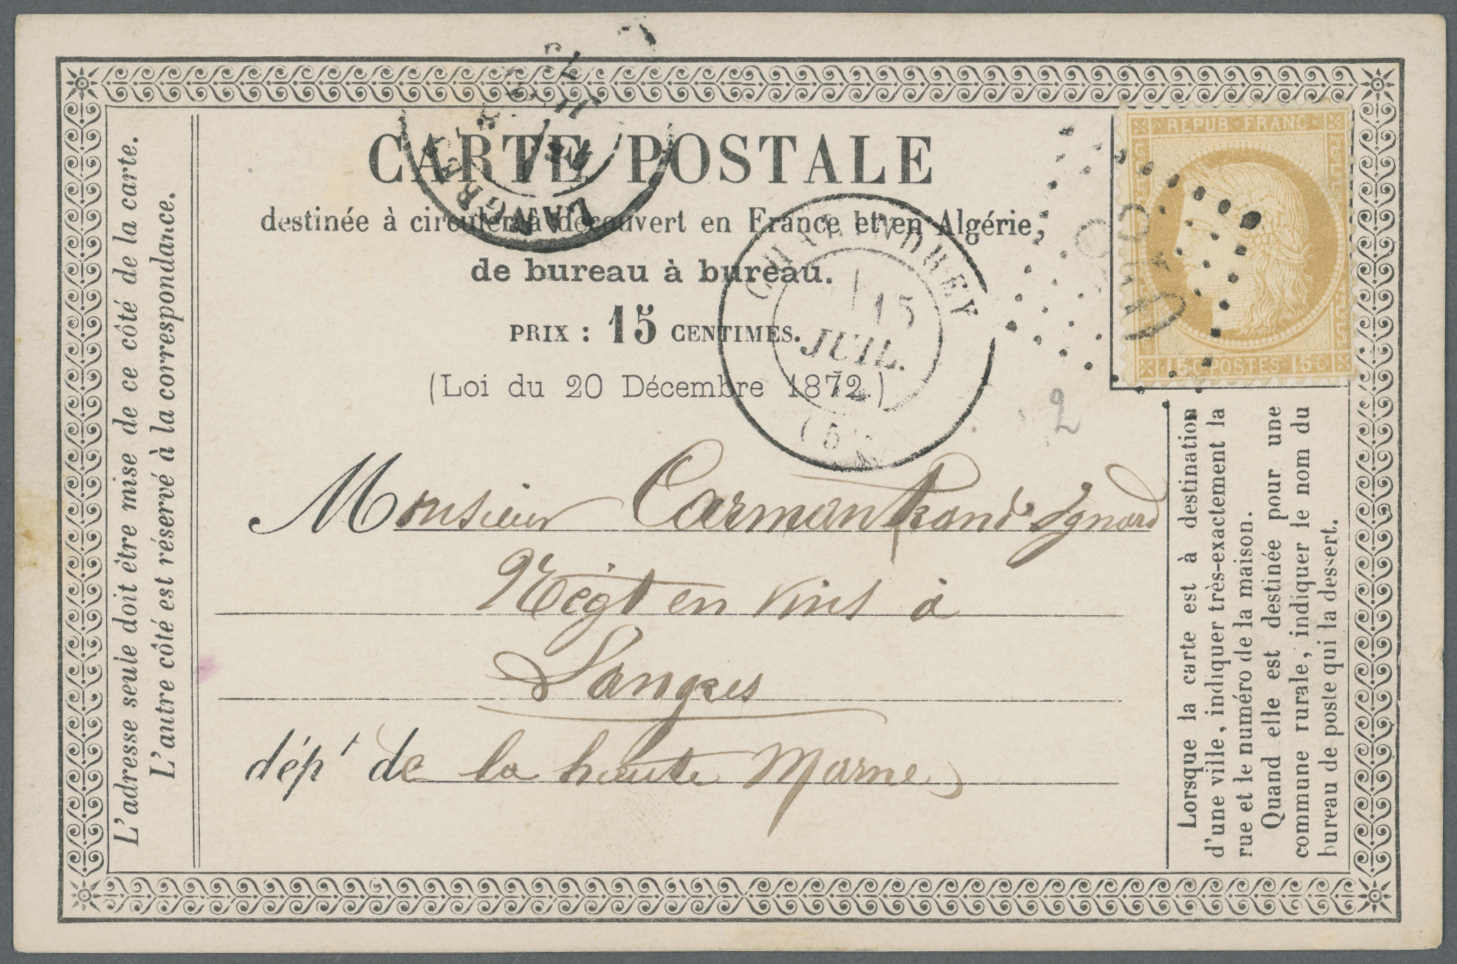 CARTE POSTALE
destinée à circuler à découvert en France et en Algérie,
de bureau à bureau.
PRIX : 15 CENTIMES.
(Loi du 20 Décembre 1872.)
REPUB FRANC
15 C POSTES 15 C
CHALINDREY
15
JUIL.
LANGRES
2
Monsieur Carmantrand-Ignard
Négt en vins à
Langres
dépt de la haute Marne
L'adresse seule doit être mise de ce côté de la carte.
L'autre côté est réservé à la correspondance.
Lorsque la carte est à destination
d'une ville, indiquer très-exactement la
rue et le numéro de la maison.
Quand elle est destinée pour une
commune rurale, indiquer le nom du
bureau de poste qui la dessert.